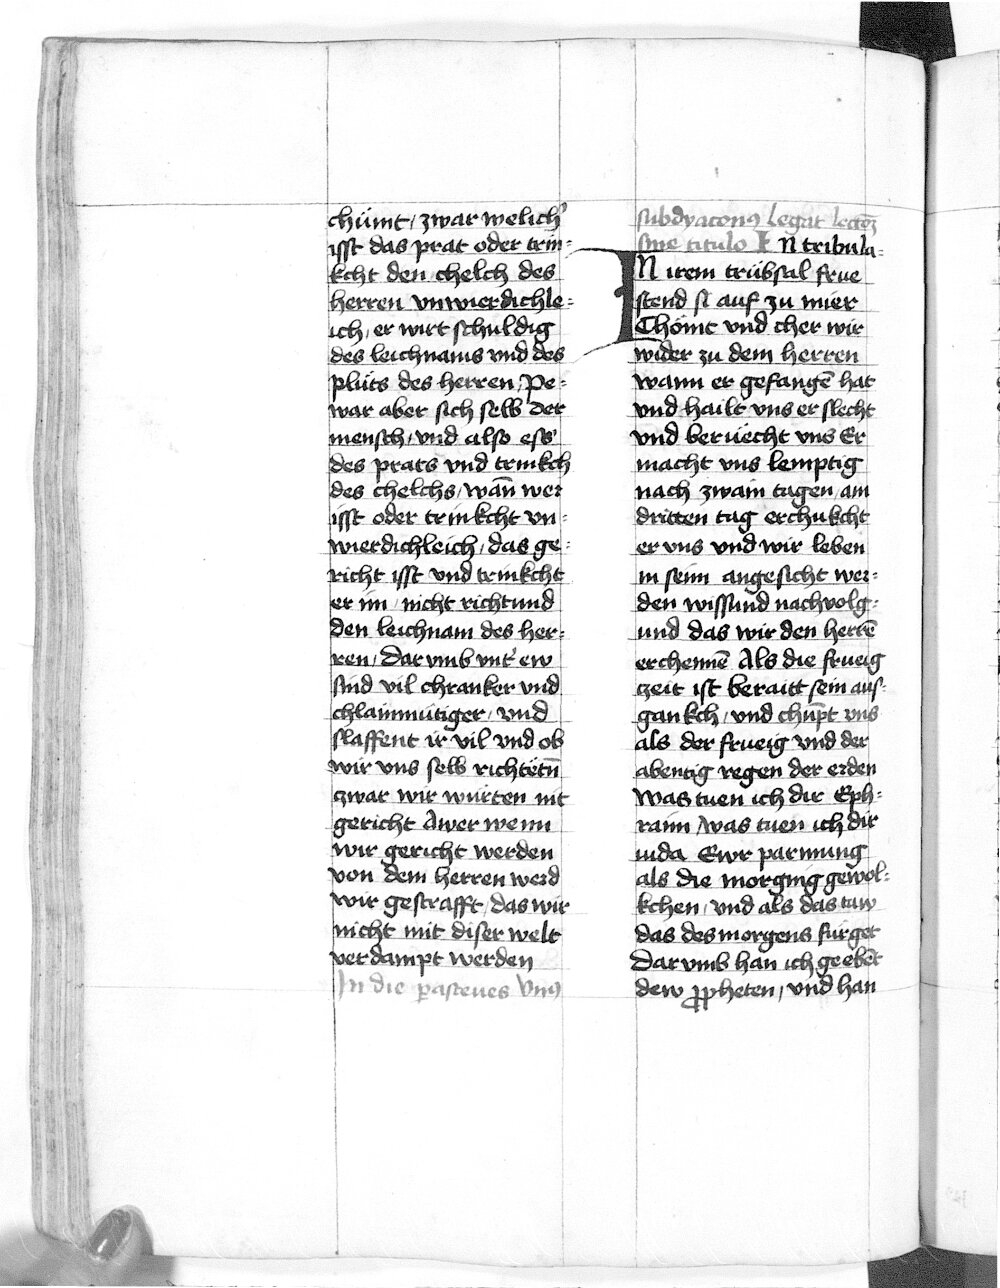 chümt / zwar welich'
isst das prat oder trin-
kcht den chelch des
herren vnwierdichle-
ich / er wirt schuldig
des leichnams vnd des
plüts des herren / Pe-
war aber sich selb der
mensch / vnd also ess
des prats vnd trinkch
des chelchs / wan̄ wer
isst oder trinkcht vn-
wierdichleich / das ge-
richt isst vnd trinkcht
er im / nicht richtund
den leichnam des her-
ren / Dar vmb vnt' ew
sind vil chranker vnd
chlainmütiger / vnd
slaffent ir vil vnd ob
wir vns selb richtētn̄
zwar wir würten nit
gericht Awer wenn
wir gericht werden
von dem herren werd
wir gestrafft / das wir
nicht mit diser welt
verdampt werden
In die ꝑasceues Vnꝯ
subdyaconꝯ legat lectōꝫ
sine titulo In tribula-
IN irem trübsal frue
stend si auf zu mier
Chömt vnd cher wir
wider zu dem herren
wann er gefangē hat
vnd hailt vns er slecht
vnd beruecht vns Er
macht vns lemptig
nach zwain tagen / am
dritten tag erchukcht
er vns vnd wir leben
in seim angesicht wer-
den wissund nachvolg-
und das wir den herrē
erchennē Als die frueig
zeit ist beraitt sein aus-
gankch / vnd chūpt vns
als der frueig vnd der
abentig regen der erden
Was tuen ich dir Eph-
raim / was tuen ich dir
iuda Ewr parmung
als die morgnig gewol-
kchen / vnd als das taw
das des morgens fürget
Dar vmb han ich geebēt
dew ꝓpheten / vnd han